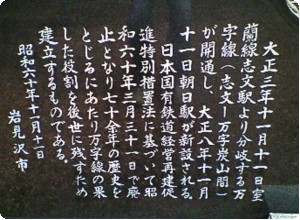 大正三年十一月十一日室
蘭線志文駅より分岐する万
字線（志文ー万字炭山間）
が開通し、大正八年十一月
十一日朝日駅が新設される。
日本国有鉄道経営再建促
進特別措置法に基づいて昭
和六十年三月三十一日で廃
止となり七十余年の歴史を
とじるにあたり万字線の果
した役割を後世に残すため
建立するものである。
昭和六十年十一月十一日
岩見沢市